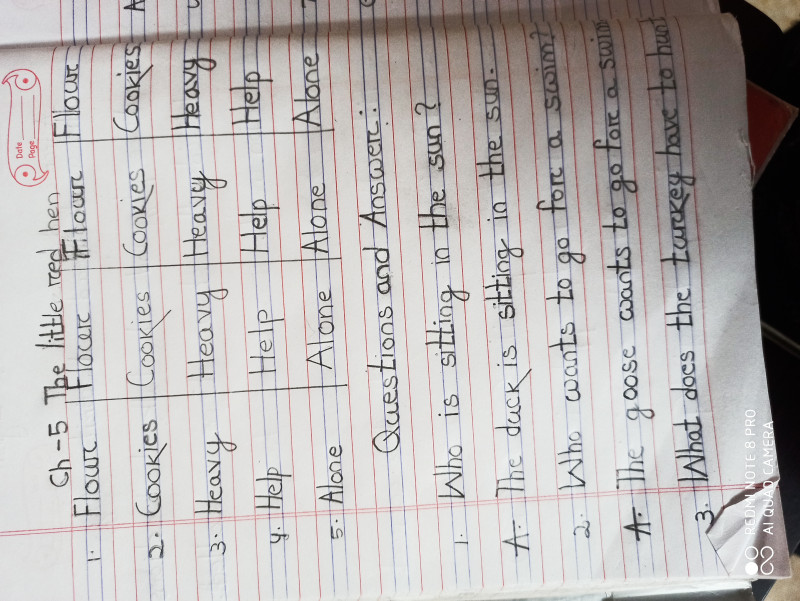 Date
Page
Ch-5 The little red hen
1. Flour Flour Flour Flour
2. Cookies Cookies Cookies Cookies
3. Heavy Heavy Heavy Heavy
4. Help Help Help Help
5. Alone Alone Alone Alone
Questions and Answer:
1. Who is sitting in the sun?
A. The duck is sitting in the sun.
2. Who wants to go for a swim?
A. The goose wants to go for a swim
3. What does the turkey have to hunt
REDMI NOTE 8 PRO
AI QUAD CAMERA